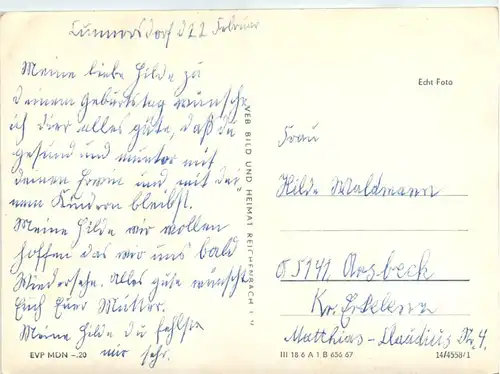 Cunnersdorf d 22 Februar
Meine liebe Hilde zu
deinem Geburtstag wünsche
ich dier alles gute, daß du
gesund und munter mit
deinen Erwin und mit dei
nem Kindern bleibst.
Meine Hilde wir wollen
hoffen das wir uns bald
Wiedersehn. Alles gute wünscht
Euch Euer Mutter.
Meine Hilde du fehlst
mir sehr.
EVP MDN –.20
VEB BILD UND HEIMAT REICHENBACH i. V.
Echt Foto
Frau
Hilde Waldmann
5141 Arsbeck
Kr. Erkelenz
Matthias-Claudius Str. 4.
III 18 6 A 1 B 656 67
14/4558/1